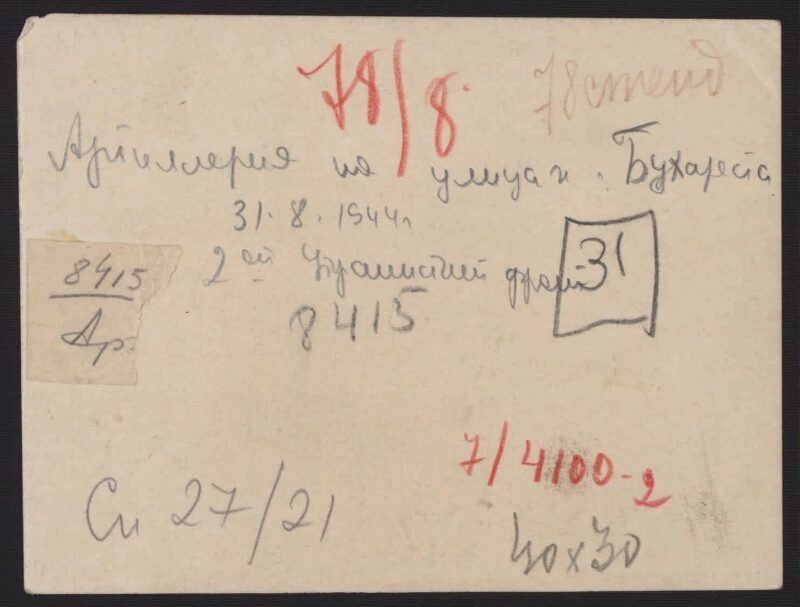 78/8.
78 стенд
Артиллерия на улицах. Бухареста
31.8.1944г
2ой Украинский фронт
31
8415
8415
Ар.
7/4100-2
Сп 27/21
40х30